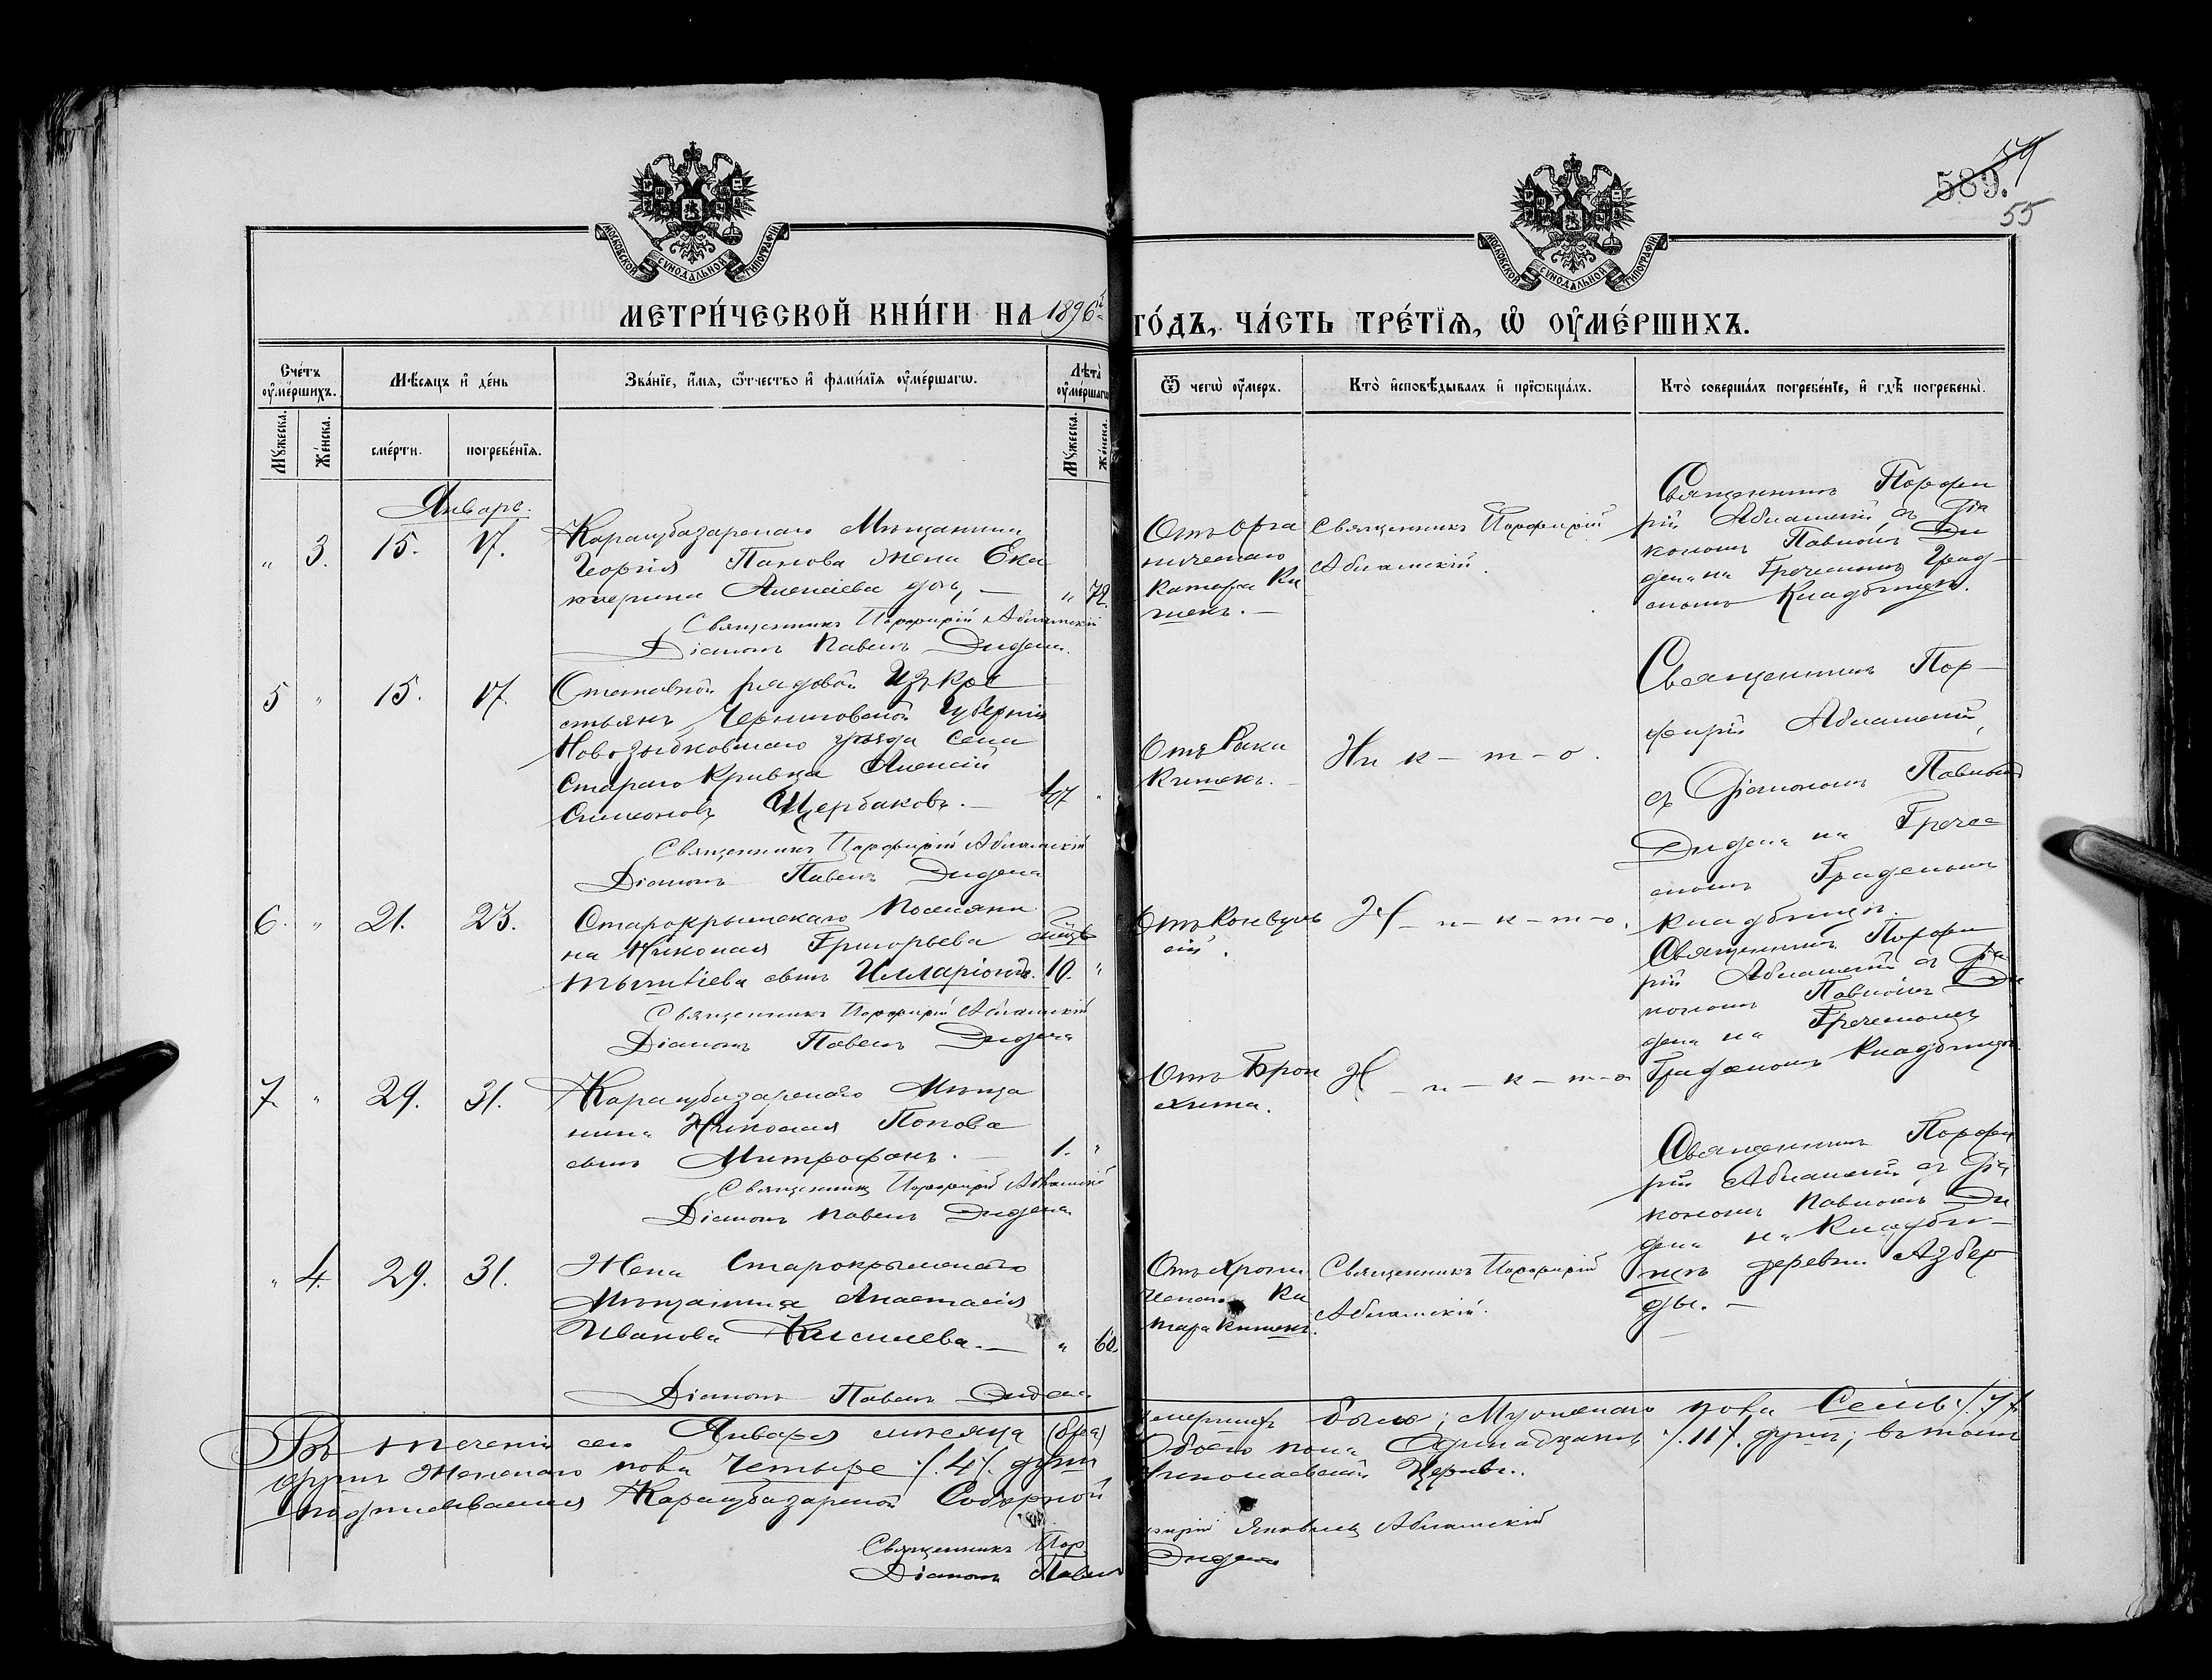 589.
59
55
МОСКОВСКОЙ СУНОДАЛЬНОЙ ТИПОГРАФІИ
МОСКОВСКОЙ СУНОДАЛЬНОЙ ТИПОГРАФІИ
МЕТРИ́ЧЕСКОЙ КНИ́ГИ НА 1896й ГО́ДЪ, ЧА́СТЬ ТРЕ́ТЇѦ, Ѡ҆ ОУ҆МЕ́РШИХЪ.
Сче́тъ оу҆ме́ршихъ.
Мѣ́сѧцъ и҆ де́нь
Зва́нїе, и҆́мѧ, ѻ҆́тчество и҆ фами́лїѧ оу҆ме́ршагѡ.
Лѣ́та оу҆ме́ршагѡ
Ѿ чегѡ̀ оу҆́меръ.
Кто̀ и҆сповѣ́дывалъ и҆ прїѡбща́лъ.
Кто̀ соверша́лъ погребе́нїе, и҆ гдѣ̀ погребены̀.
Му́жеска.
Же́нска.
сме́рти.
погребе́нїѧ.
Му́жеска.
Же́нска.
Январь.
" 3. 15. 17.
Карасубазарскаго Мѣщанина
Георгія Попова жена Ека
терина Алексіева дочь — " 72.
Священникъ Порфирій Абламскій
Діаконъ Павелъ Дидена.
Отъ орга
ническаго
Катара Ки
шекъ. —
Священникъ Порфирій
Абламскій.
Священникъ Порфи
рій Абламскій съ Діа
кономъ Павломъ Ди
дена на Греческомъ Град-
скомъ Кладбищѣ.
5 " 15. 17.
Отставной рядовой Изъ кре
стьянъ Черниговской Губерніи
Новозыбковскаго уѣзда села
Стараго Кривца Алексій
Симеоновъ Щербаковъ. — 47 "
Священникъ Порфирій Абламскій
Діаконъ Павелъ Дидена
Отъ Рака
Кишекъ. —
Ни к - т - о.
Священникъ Пор-
фирій Абламскій,
съ Діакономъ Павломъ
Дидена на Грече
скомъ Градскомъ
кладбищѣ.
6. " 21. 23.
Старокрымскаго Поселяни
на Николая Григорьева
сынъ Илларіонъ. 10. "
Священникъ Порфирій Абламскій
Діаконъ Павелъ Дидена
Отъ Конвуль
сій.
Н - и - к - т - о.
Священникъ Порфи
рій Абламскій съ Діа
кономъ Павломъ Ди
дена на Греческомъ
Градскомъ Кладбищѣ
7. " 29. 31.
Карасубазарскаго Мѣща
нина Николая Попова
сынъ Митрофанъ. — 1. "
Священникъ Порфирій Абламскій
Діаконъ Павелъ Дидена
Отъ Брон
хита.
Н - и - к - т - о
Священникъ Порфи
рій Абламскій съ Діа
кономъ Павломъ Ди
дена на Кладби-
щѣ деревни Азбер
ды. —
" 4. 29. 31.
Жена Старокрымскаго
Мѣщанина Анастасія
Иванова Киселева. — " 60.
Діаконъ Павелъ Дидена
Отъ Хрони
ческаго Ка
тара кишекъ.
Священникъ Порфирій
Абламскій.
Въ теченіи сего Января мѣсяца (бра) умершихъ было; Мужескаго пола Семь /.7/.
душъ Женскаго пола Четыре /.4/. душъ Обоего пола Одинадцать /.11/. душъ; въ томъ
подписываемся Карасубазарской Соборной Николаевской Церкви.
Священникъ Порфирій Яковлевъ Абламскій
Діаконъ Павелъ Дидена